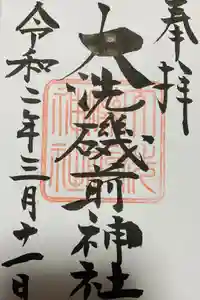 奉拝
大洗磯前神社
令和二年三月十一日